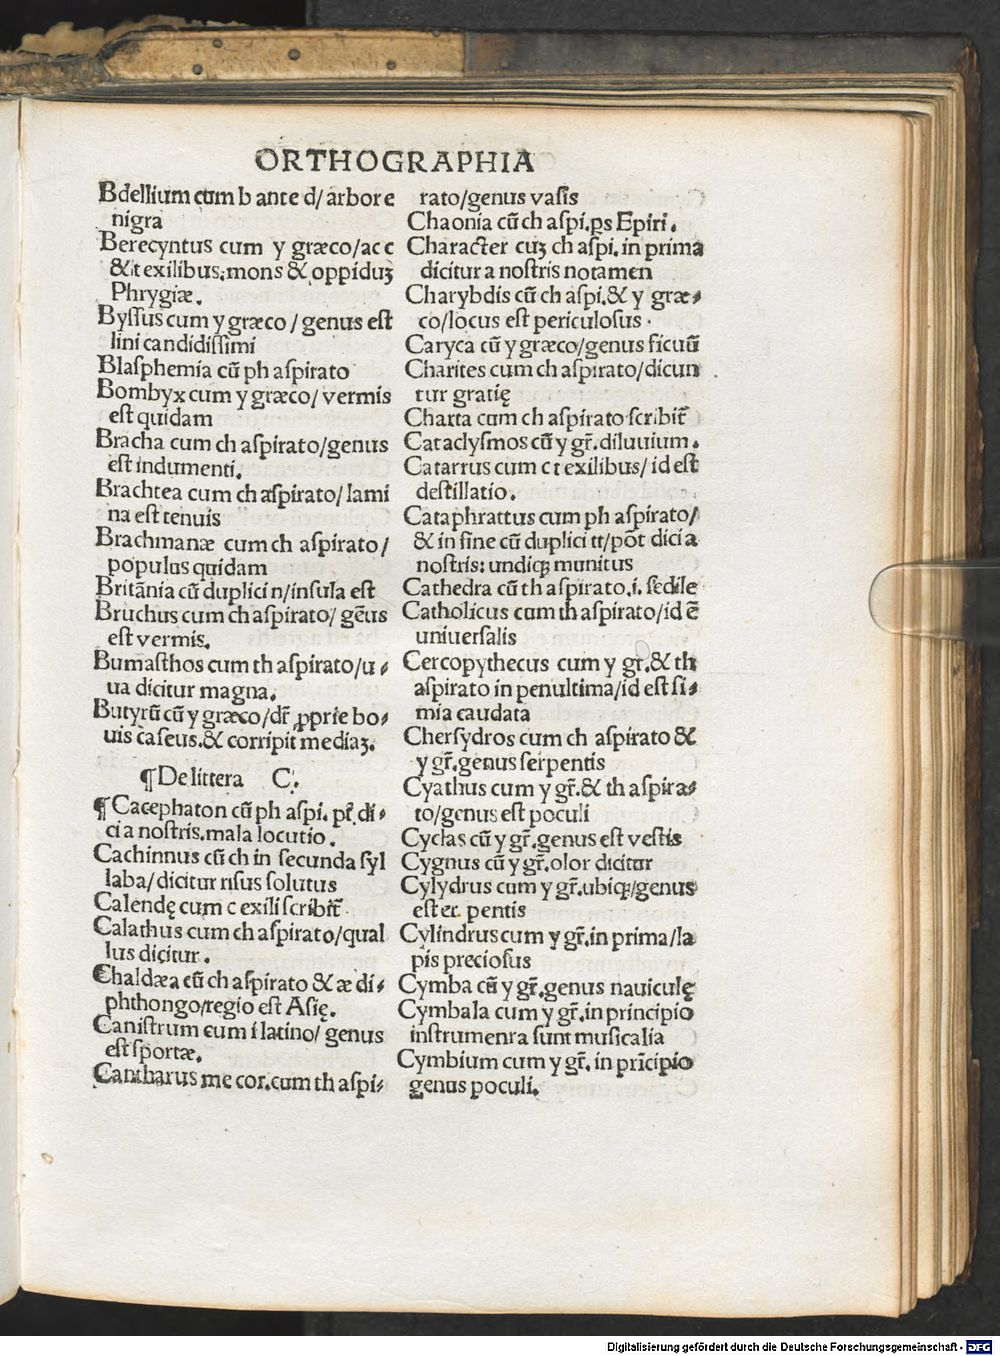 ORTHOGRAPHIA
Bdellium cum b ante d/ arbore
nigra
Berecyntus cum y græco/ac c
& t exilibus: mons & oppiduꝫ
Phrygiæ.
Byſſus cum y græco / genus eſt
lini candidiſſimi
Blaſphemia cū ph aſpirato
Bombyx cum y græco/ vermis
eſt quidam
Bracha cum ch aſpirato/genus
eſt indumenti.
Brachtea cum ch aſpirato/ lami
na eſt tenuis
Brachmanæ cum ch aſpirato/
populus quidam
Britānia cū duplici n/inſula eſt
Bruchus cum ch aſpirato/ gēus
eſt vermis.
Bumaſthos cum th aſpirato/u⸗
ua dicitur magna.
Butyrū cū y græco/dr̄ ꝓprie bo⸗
uis caſeus.& corripit mediaꝫ.
¶ De littera C.
¶ Cacephaton cū ph aſpi. pt̄ di⸗
ci a noſtris.mala locutio.
Cachinnus cū ch in ſecunda ſyl
laba/dicitur riſus ſolutus
Calendę cum c exili ſcribit̄
Calathus cum ch aſpirato/qual
lus dicitur.
Chaldæa cū ch aſpirato & æ di⸗
phthongo/regio eſt Aſię.
Caniſtrum cum i latino/ genus
eſt ſportæ.
Cantharus me cor.cum th aſpi⸗
rato/genus vaſis
Chaonia cū ch aſpi.ꝑs Epiri.
Character cuꝫ ch aſpi. in prima
dicitur a noſtris notamen
Charybdis cū ch aſpi.& y græ⸗
co/locus eſt periculoſus.
Caryca cū y græco/genus ficuū
Charites cum ch aſpirato/dicun
tur gratię
Charta cum ch aſpirato ſcribit̄
Cataclyſmos cū y gr̄.diluuium.
Catarrus cum c t exilibus/ id eſt
deſtillatio.
Cataphrattus cum ph aſpirato/
& in fine cū duplici tt/pōt dici a
noſtris: undiqꝫ munitus
Cathedra cū th aſpirato.i. ſedile
Catholicus cum th aſpirato/id ē
uniuerſalis
Cercopythecus cum y gr̄.& th
aſpirato in penultima/id eſt ſi⸗
mia caudata
Cherſydros cum ch aſpirato &
y gr̄.genus ſerpentis
Cyathus cum y gr̄.& th aſpira⸗
to/genus eſt poculi
Cyclas cū y gr̄.genus eſt veſtis
Cygnus cū y gr̄.olor dicitur
Cylydrus cum y gr̄.ubiqꝫ/genus
eſt er pentis
Cylindrus cum y gr̄.in prima/la
pis precioſus
Cymba cū y gr̄.genus nauiculę
Cymbala cum y gr̄.in principio
inſtrumenra ſunt muſicalia
Cymbium cum y gr̄. in prīcipio
genus poculi.
Digitalisierung gefördert durch die Deutsche Forschungsgemeinschaft - DFG